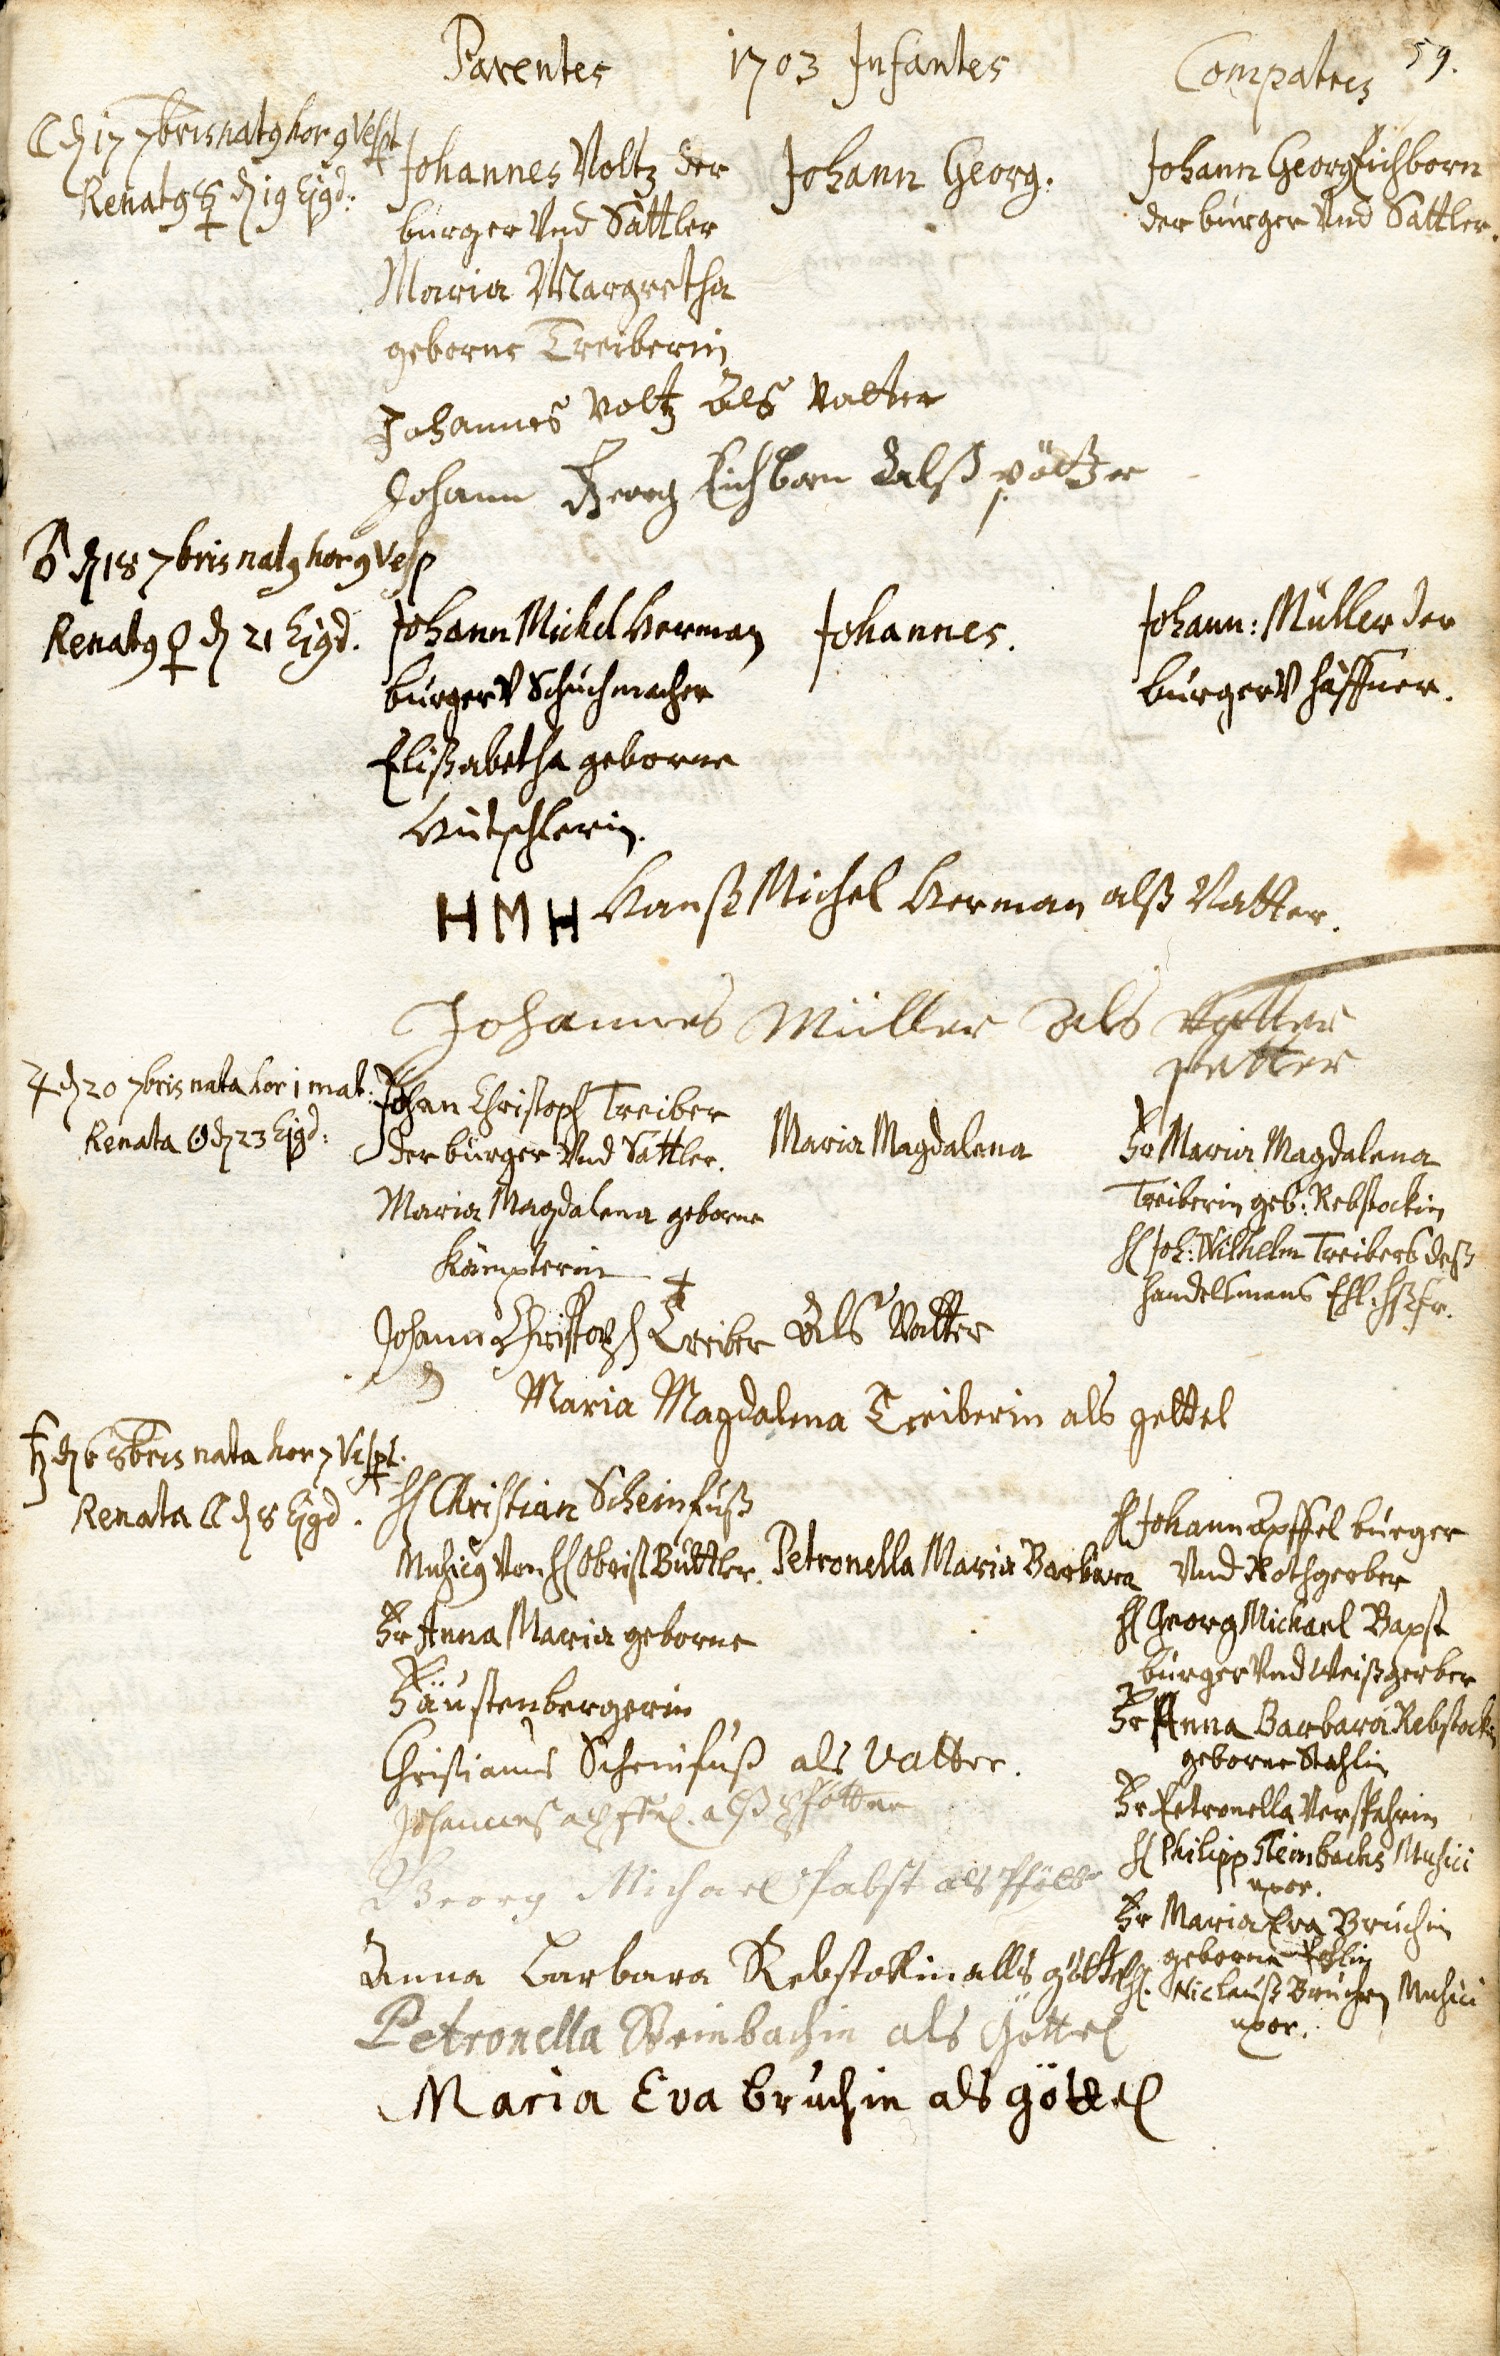 Parentes 1703 Infantes Compatres 59.
☾ d 17 7bris nat9 hor 9 Vespt
Renat9 ☿ d 19 Ejusd:
Johannes Voltz der
burger Vnd Sattler
Maria Margretha
geborne Treiberin
Johann Georg.
Johann Georg Eichborn
der burger Vnd Sattler.
Johannes Voltz als Vatter
Johann Georg Eichborn alß pötter
♂ d 18 7bris nat9 hor 9 Vesp
Renat9 ♀ d 21 Ejgd.
Johann Michel Herman
burger V Schuchmacher
Elißabetha geborne
Hütschlerin.
Johannes.
Johann: Müller der
burger V haffner.
HMH Hanß Michel Herman alß Vatter.
Johannes Müller als Vatter
petter
♃ d 20 7bris nata hor 1 mat:
Renata ☉ d 23 Ejgd:
Johan Christoph Treiber
der burger Vnd Sattler.
Maria Magdalena geborne
Kämpterin
Maria Magdalena
Fr Maria Magdalena
Treiberin geb: Rebstockin
H Joh: Wilhelm Treibers deß
handelsmans Ehl. Hßfr.
Johann Christoph Treiber als Vatter
Maria Magdalena Treiberin als gettel
♄ d 6 8bris nata hor 7 Vespt.
Renata ☾ d 8 Ejgd.
H Christian Scheinfuß
Musicg Von H Obrist Buttler.
Fr Anna Maria geborne
Fäustenbergerin
Petronella Maria Barbara
H Johann Apffel burger
Vnd Rothgerber
H Georg Michael Bapst
burger Vnd Weißgerber
Fr Anna Barbara Rebstockin
geborne Stahlin
Fr Petronella
H Philipp Steinbachs Musici
uxor.
Fr Maria Eva Bruchin
geborne
H. Niclauß Bruchen Musici
uxor.
Christianus Scheinfuß als Vatter.
Johannes apffel. alß Pfötter
Georg Michael Pabst als Pfötter
Anna Barbara Rebstokin alls göttel
Petronella Steinbachin als Göttel
Maria Eva bruchin als göttel